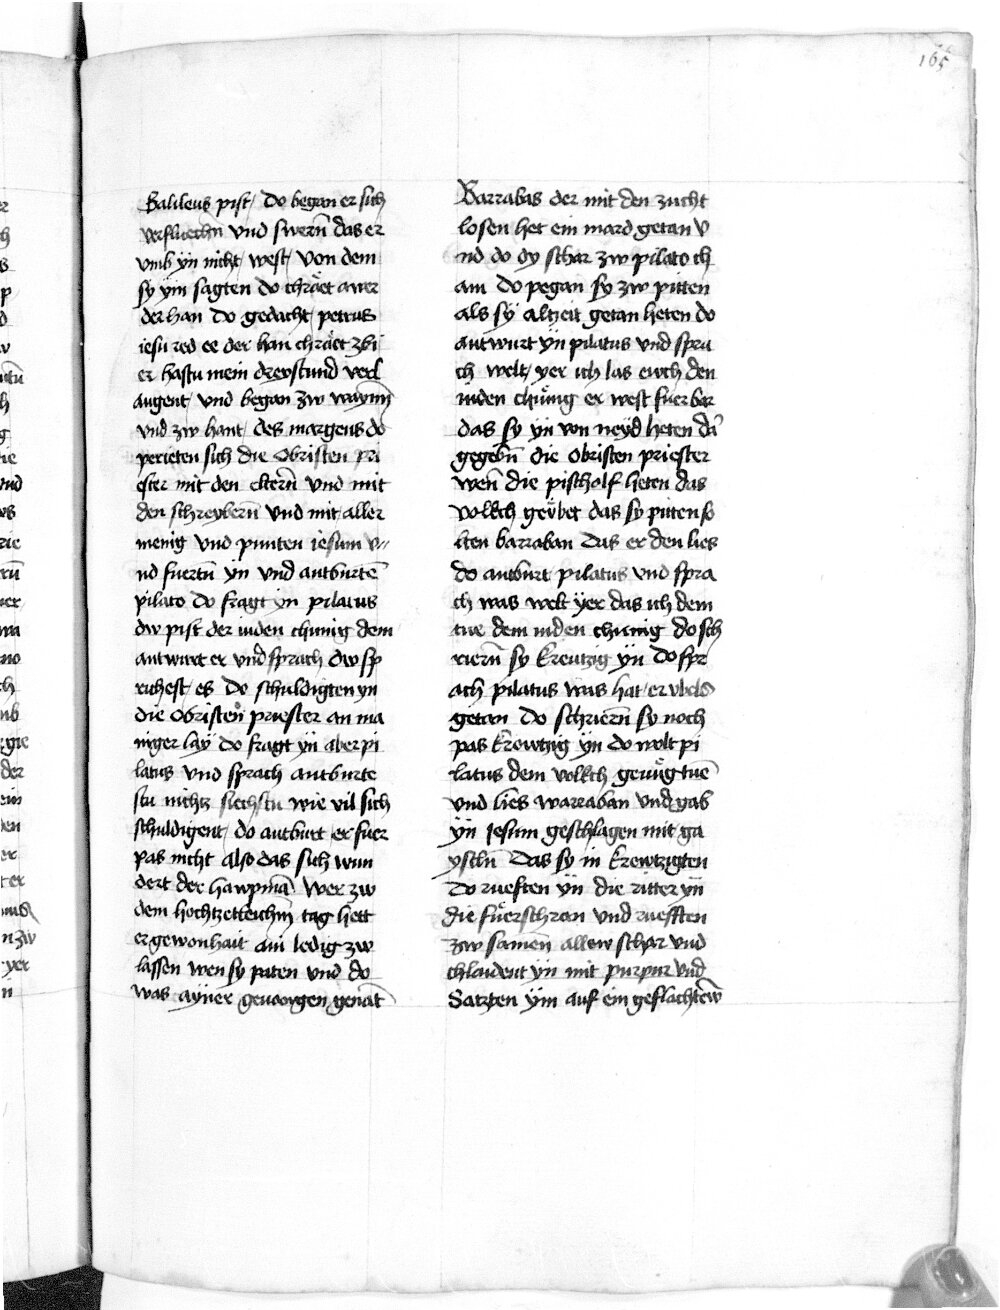 165
Galileus pist / Do began er sich
verfluechn̄ vnd swern̄ das er
vmb yn nicht / west / von dem
sy ym sagten do chraet aver
der han Do gedacht / petrus
iesu red ee der han chraet zbi
er hastu mein dreystund verl
augent / vnd began zw waynn̄
vnd zw hant / des margens do
perieten sich die Obristen pri
ester mit den eltern̄ vnd mit
den schreybern̄ vnd mit / aller
menig vnd punten iesum v
nd fuertn̄ yn vnd antburtē
pilato Do fragt yn pilatus
dw pist der iuden chunig dem
antwurt er vnd sprach dw sp
richest / es Do schuldigten yn
die Obristen priester an ma
niger lay Do fragt yn aber pi
latus vnd sprach antburte
stu nichtz siechstu wie vil sich
schuldigent / do antburt er fuer
pas nicht also das sich wun
dert der hawpmā Wer zw
dem hochtzeitleichn̄ tag hett
er gewonhait ain ledig zw
lassen wen sy paten vnd do
was ayner genant
Barrabas der mit den zucht
losen het ein mard getan v
nd do dy schar zw pilato ch
am Do pegan sy zw pitten
als sy altzeit getan heten do
antwurt yn pilatus vnd spra
ch welt / yer ich las euch den
iuden chunig er west fuerbar
das sy yn von neyd heten da
gegebn̄ die obristen priester
wen̄ die pischolf heten das
volkch geubet das sy pitten so
lten barraban Das er den lies
do antburt pilatus vnd spra
ch was welt yer das ich dem
tue dem iuden chunig do sch
riern̄ sy kreutzig yn Do spr
ach pilatus was hat / er vbels
getan Do schriern̄ sy noch
pas krewtzig yn Do wolt pi
latus dem volkch genug tuē
vnd lies warraban vnd gab
yn Iesum geschlagen mit ga
ysln̄ Das sy in krewtzigten
Do ruefften yn die ritter yn
die fuerschran vnd ruefften
zw samen allew schar vnd
chlaident yn mit purpur vnd
Satzten ym auf ein geflachtew